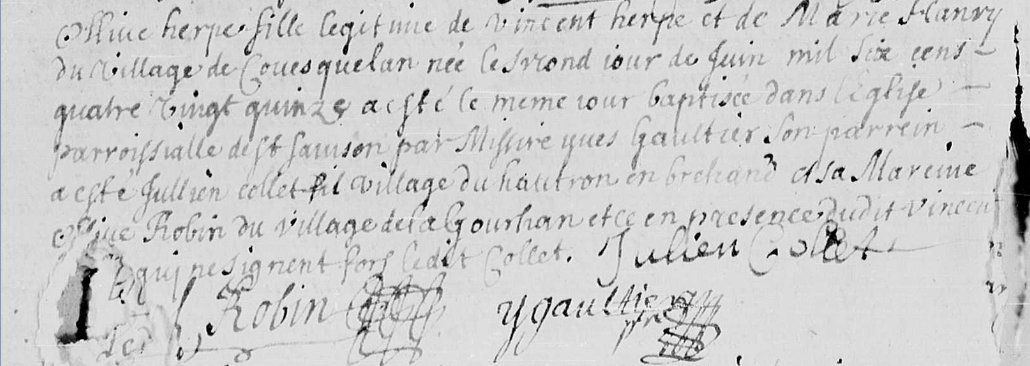 Ollive herpe fille legitime de Vincent herpe et de Marie Hanry
du Village de Couesquelan née le second iour de Juin mil six cens
quatre Vingt quinze a esté le meme iour baptisée dans lEglise
parroissialle de st samson par Missire yves Gaultier son parrein
a esté Jullien collet village du en brehand et sa Mareine
Ollive Robin du Village de la Gourhan et ce en presence dudit Vincen
qui ne signent fors ledit Collet. Julien Collet
Robin ygaultier